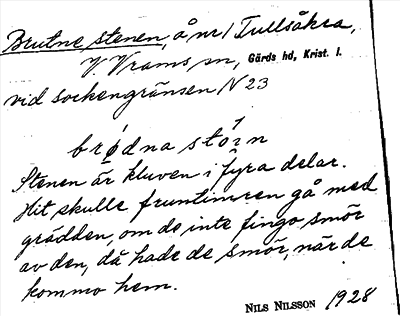 Brutne stenen, å nr 1 Tullsåkra,
V. Vrams sn, Gärds hd, Krist. l.
vid sockengränsen N 23
brødna stóɪn
Stenen är kluven i fyra delar.
Hit skulle fruntimren gå med
grädden, om de inte fingo smör
av den, då hade de smör, när de
kommo hem.
NILS NILSSON 1928